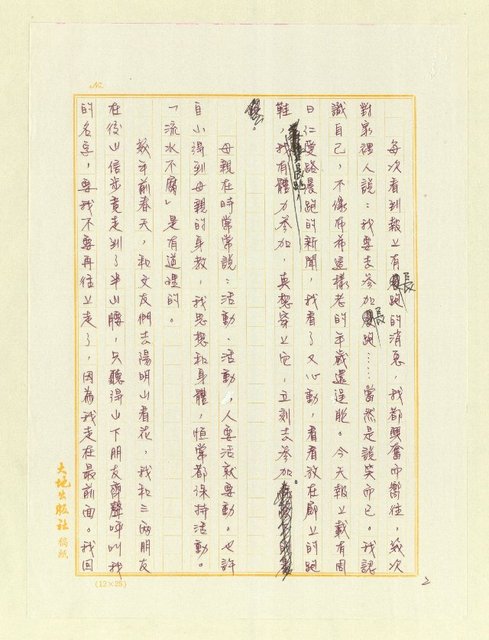 每次看到報上有長跑的消息，我都興奮而嚮往，幾次
對家裡人說：我要去參加長跑……當然是說笑而已。我認
識自己，不像布希這樣老的年歲還逞能。今天報上載有周
日仁愛路晨跑的新聞，我看了又心動，看看放在廊上的跑
鞋，我有體力參加，真想穿上它，立刻去參加。
母親在時常常說：活動、活動，人要活就要動。也許
自小得到母親的身教，我思想和身體，恒常都保持活動。
「流水不腐」是有道理的。
數年前春天，和文友們去陽明山看花，我和三兩朋友
在後山信步竟走到了半山腰，只聽得山下朋友齊聲呼叫我
的名字，要我不要再往上走了，因為我走在最前面。我回
No.
大地出版社 稿紙
(12×25)
2